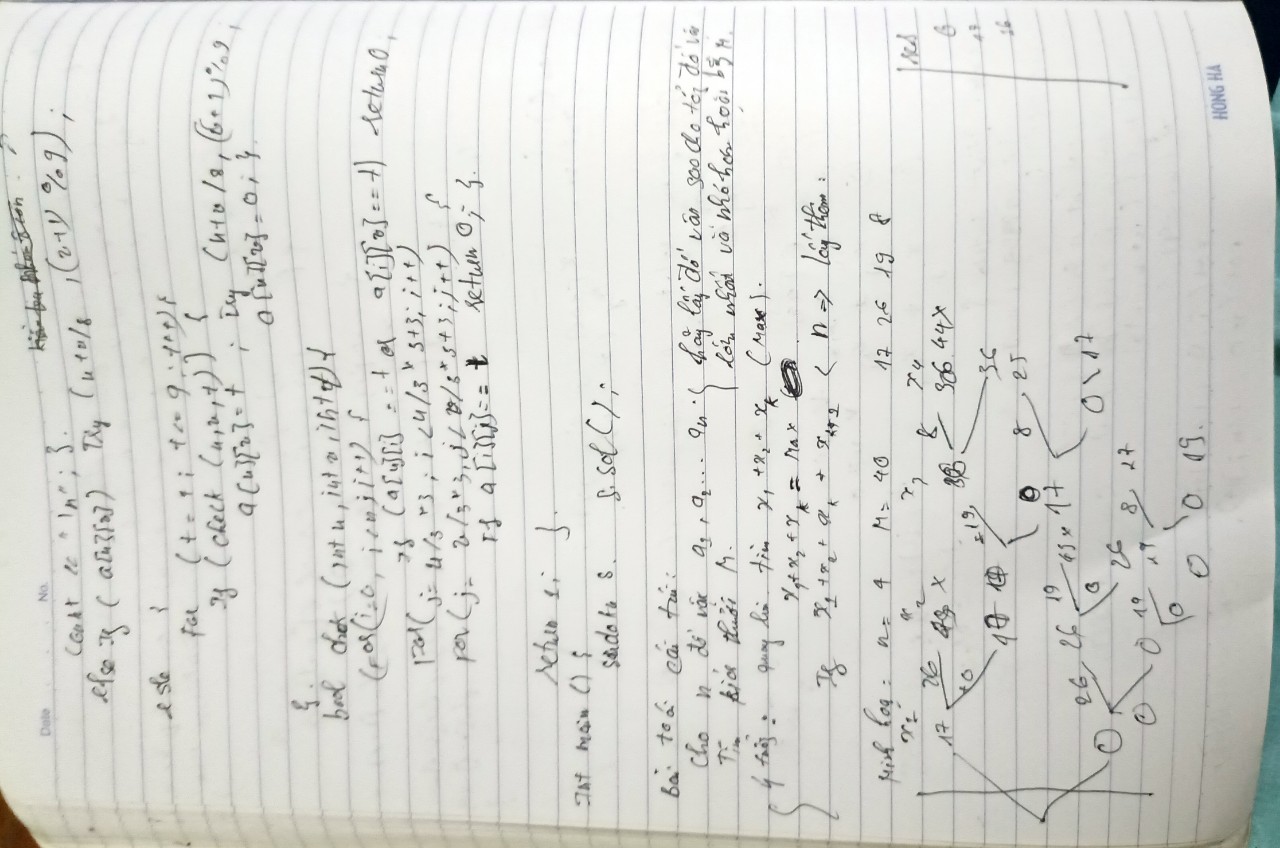 Date No.
cout << "\n"; }.
else If ( a[u][v]) Try (u+v/8 ,(v+1) %9);
else {
For (t = 1; t<= 9; t++){
If (check (u,v,t)) {
a[u][v]=t ; Try (u+v/8, (v+1)%9;
a[u][v]=0; }.
}.
bool chek (int u, int v, int t){
(for(i=0, i<n; i++) {
If (a[u][i] == t or a[i][v]==t) return 0,
For( j= u/3*3; i<u/3*3+3; i++)
for ( j= v/3*3, j< v/3*3+3; j++) {
If a[i][j]== t return 0; }.
return 1; }.
Int main () {
sudoku s. s.sol();
Bài toá cái túi:
Cho n đồ vậ a1, a2... an. { hãy lấy đồ vậ sao cho tổ đồ vậ
Tíu kích thước M. lớn nhấ và nhỏ hơn hoặc bằ M.
Ý tưở: quay lui tìm x1 +x2 + xk (Max).
x1+x2+xk = Max
If x1+x2+ xk + < n => lấy thêm:
Minh hoạ: n= 4 M= 40 17 26 19 8
x1 x2 x3 x4 res
17 26 43 x 36 8 44x 0
+0 17 +19 36 19
0 17 8 25 26
26 26 19 45x 0 17
0 0 26
0 0 19 19 8 27
0 0 0 19.
HONG HA